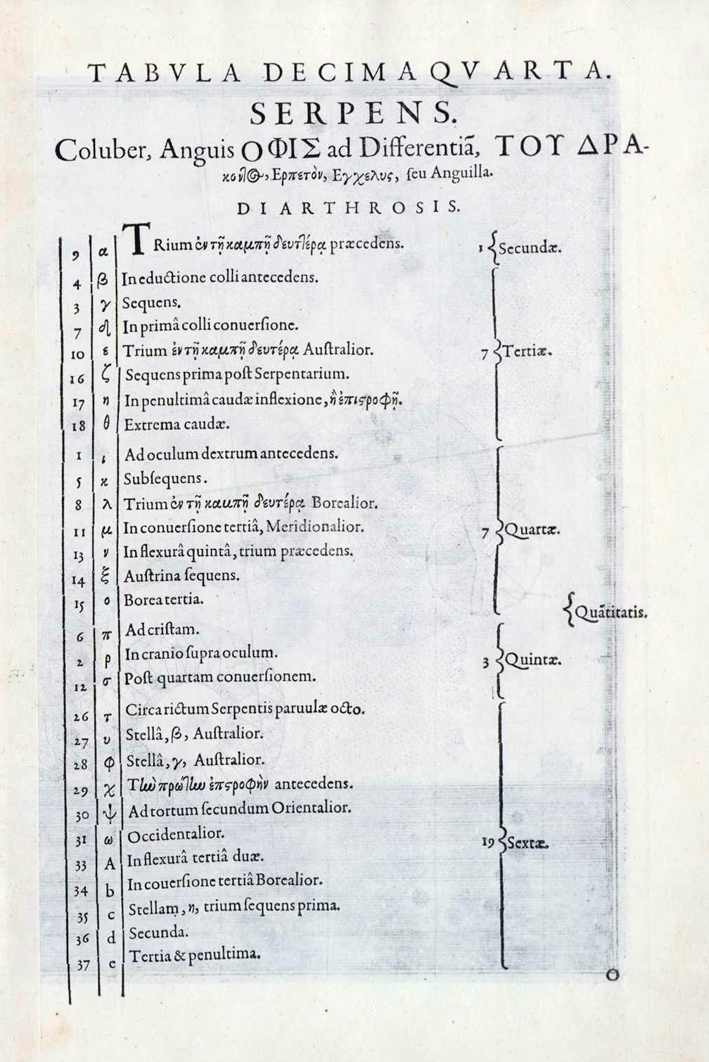 TABVLA DECIMAQVARTA.
SERPENS.
Coluber, Anguis ΟΦΙΣ ad Differentiã, ΤΟΥ ΔΡΑ-
κοντꙮ, Ερπετὸν, Εγχελυς, ſeu Anguilla.
DIARTHROSIS.
9 α TRium ἐν τῇ καμπῇ δευτέρᾳ præcedens. 1 { Secundæ.
4 β In eductione colli antecedens.
3 γ Sequens.
7 δ In primâ colli conuerſione.
10 ε Trium ἐν τῇ καμπῇ δευτέρᾳ Auſtralior. 7 { Tertiæ.
16 ζ Sequens prima poſt Serpentarium.
17 η In penultimâ caudæ inflexione, ἢ ἐπιςροφῇ.
18 θ Extrema caudæ.
1 ι Ad oculum dextrum antecedens.
5 κ Subſequens.
8 λ Trium ἐν τῇ καμπῇ δευτέρᾳ Borealior.
11 μ In conuerſione tertiâ, Meridionalior. 7 { Quartæ.
13 ν In flexurâ quintâ, trium præcedens.
14 ξ Auſtrina ſequens.
15 ο Borea tertia.
{ Quãtitatis.
6 π Ad criſtam.
2 ρ In cranio ſupra oculum. 3 { Quintæ.
12 σ Poſt quartam conuerſionem.
26 τ Circa rictum Serpentis paruulæ octo.
27 υ Stellâ, β, Auſtralior.
28 φ Stellâ, γ, Auſtralior.
29 χ Τὼ πρώτω ἐπςροφὴν antecedens.
30 ψ Ad tortum ſecundum Orientalior.
31 ω Occidentalior. 19 { Sextæ.
33 A In flexurâ tertiâ duæ.
34 b In couerſione tertiâ Borealior.
35 c Stellam, η, trium ſequens prima.
36 d Secunda.
37 e Tertia & penultima.
O